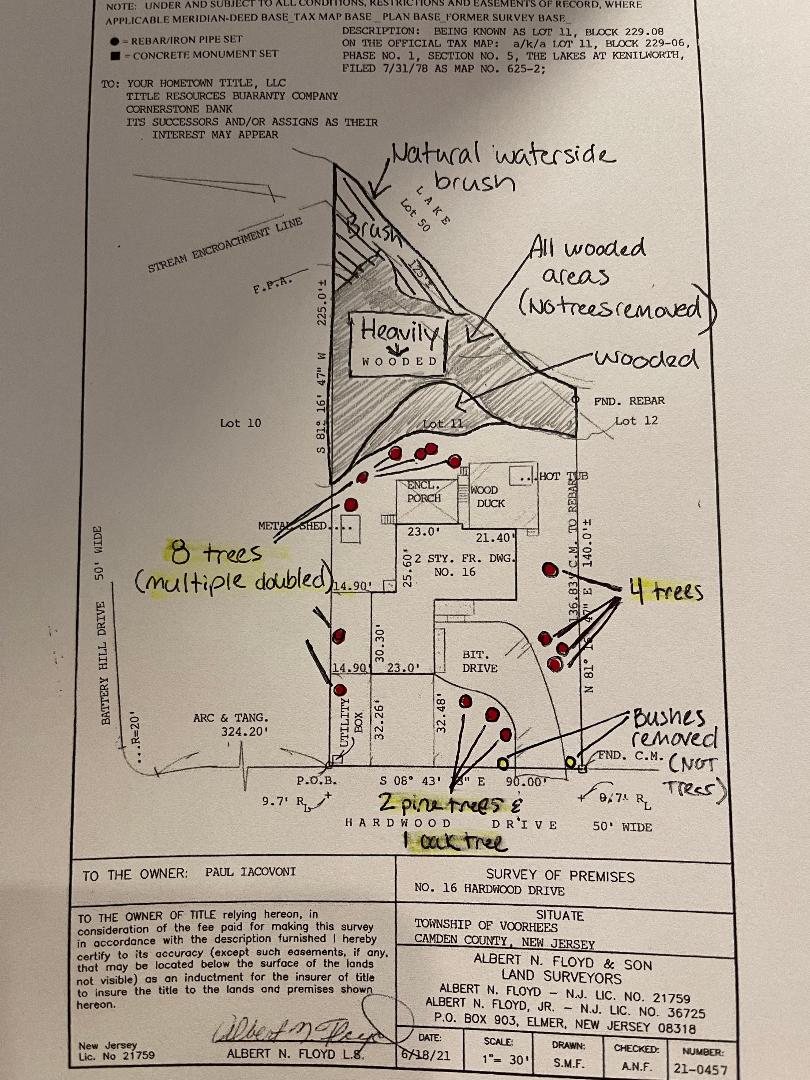 NOTE: UNDER AND SUBJECT TO ALL CONDITIONS, RESTRICTIONS AND EASEMENTS OF RECORD, WHERE
APPLICABLE MERIDIAN-DEED BASE_TAX MAP BASE_ PLAN BASE_FORMER SURVEY BASE_
● = REBAR/IRON PIPE SET
■ = CONCRETE MONUMENT SET
DESCRIPTION: BEING KNOWN AS LOT 11, BLOCK 229.08
ON THE OFFICIAL TAX MAP: a/k/a LOT 11, BLOCK 229-06,
PHASE NO. 1, SECTION NO. 5, THE LAKES AT KENILWORTH,
FILED 7/31/78 AS MAP NO. 625-2;
TO: YOUR HOMETOWN TITLE, LLC
TITLE RESOURCES BUARANTY COMPANY
CORNERSTONE BANK
ITS SUCCESSORS AND/OR ASSIGNS AS THEIR
INTEREST MAY APPEAR
Natural waterside
brush
LAKE
Lot 50
Brush
STREAM ENCROACHMENT LINE
F.P.A.
125'±
All wooded
areas
(No trees removed)
225.0'±
S 81° 16' 47" W
Heavily
WOODED
Wooded
FND. REBAR
Lot 10
Lot 11
Lot 12
...HOT TUB
ENCL.
PORCH
WOOD
DUCK
METAL SHED....
8 trees
(multiple doubled)
23.0'
21.40'
2 STY. FR. DWG.
NO. 16
25.60'
14.90'
136.83' C.M. TO REBAR
140.0'±
N 81° 16' 47" E
4 trees
BATTERY HILL DRIVE 50' WIDE
30.30'
BIT.
DRIVE
14.90'
23.0'
ARC & TANG.
324.20'
...R=20'
UTILITY
BOX
32.26'
32.48'
Bushes
removed
(NOT
Trees)
FND. C.M.
P.O.B.
S 08° 43' E 90.00'
9.7' RL
RL
2 pine trees &
1 oak tree
HARDWOOD DRIVE 50' WIDE
TO THE OWNER: PAUL IACOVONI
SURVEY OF PREMISES
NO. 16 HARDWOOD DRIVE
TO THE OWNER OF TITLE relying hereon, in
consideration of the fee paid for making this survey
in accordance with the description furnished I hereby
certify to its accuracy (except such easements, if any,
that may be located below the surface of the lands
not visible) as an inductment for the insurer of title
to insure the title to the lands and premises shown
hereon.
SITUATE
TOWNSHIP OF VOORHEES
CAMDEN COUNTY, NEW JERSEY
ALBERT N. FLOYD & SON
LAND SURVEYORS
ALBERT N. FLOYD – N.J. LIC. NO. 21759
ALBERT N. FLOYD, JR. – N.J. LIC. NO. 36725
P.O. BOX 903, ELMER, NEW JERSEY 08318
Albert N Floyd
New Jersey
Lic. No 21759
ALBERT N. FLOYD L.S.
DATE:
6/18/21
SCALE:
1"= 30'
DRAWN:
S.M.F.
CHECKED:
A.N.F.
NUMBER:
21-0457